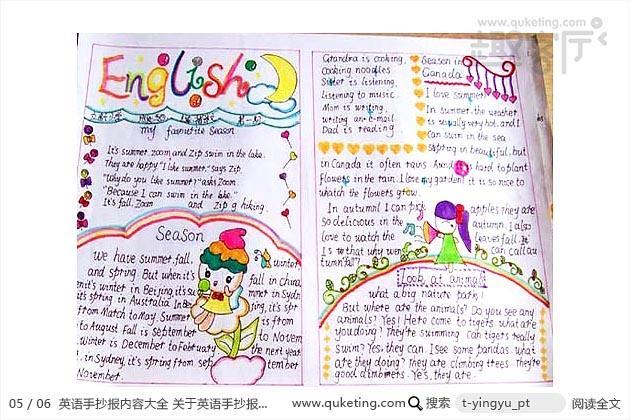 www.quketing.com
趣客厅
English
My favourite Season
It's summer. Zoom and Zip swim in the lake.
They are happy. "I like summer," says Zip.
"Why do you like summer?" asks Zoom.
"Because I can swim in the lake."
It's fall. Zoom and Zip g hiking.
Season
We have summer, fall, winter
and spring. But when it's fall in China,
it's spring in Australia. In
to August. Fall is September to Novem
Winter is December to February the next year
in Sydney, it's spring from sep tember to
November.
Grandma is cooking.
Cooking noodles.
Sister is listening,
listening to music.
Mom is writing,
writing an e-mail.
Dad is reading
Season in
Canada
I love summer
In summer, the weather
is usually very hot, and I
can swim in the sea.
Spring in beautiful, but
in Canada it often rains hard to plant
flowers in the rain. I love my garden! it is so nice to
watch the flowers grow.
In autumn I can pick apples. They are
so delicious in the autumn. I also
love to watch the leaves fall. It
Is that why we can call au
tumn fall?
Look at animal
What a big nature park!
But where are the animals? Do you see any
animals? Yes! Here come to tigers. what are
you doing? They're swimming. Can tigers really
swim? Yes, they can. I see some pandas. what
are they doing? they are climbing trees. They're
good climbers. Yes, they are.
05 / 06 英语手抄报内容大全 关于英语手抄报...
www.quketing.com 搜索 t-yingyu_pt 阅读全文